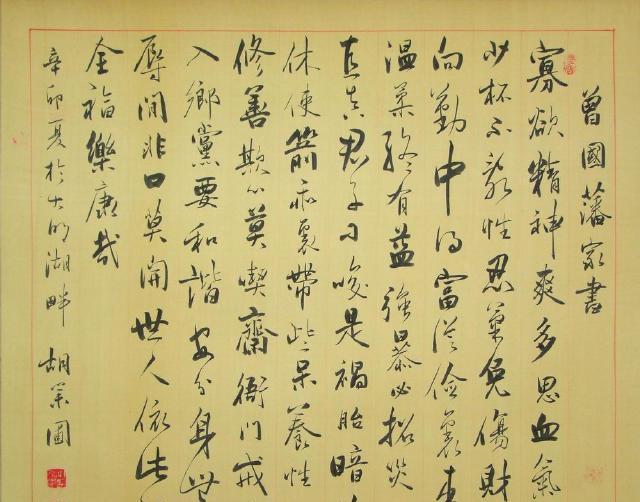 曾國藩家書
寡欲精神爽多思血氣
少杯不亂性忍氣免傷財
向勤中得富從儉裏來
溫柔終有益強暴必招災
直真君子刁唆是禍胎暗
休使箭乖裏帶些呆養性
修善欺心莫喫齋衙門戒
入鄉黨要和諧安分身
辱閒非口莫開世人依此
全福樂康哉
辛卯夏於大明湖畔 胡圖